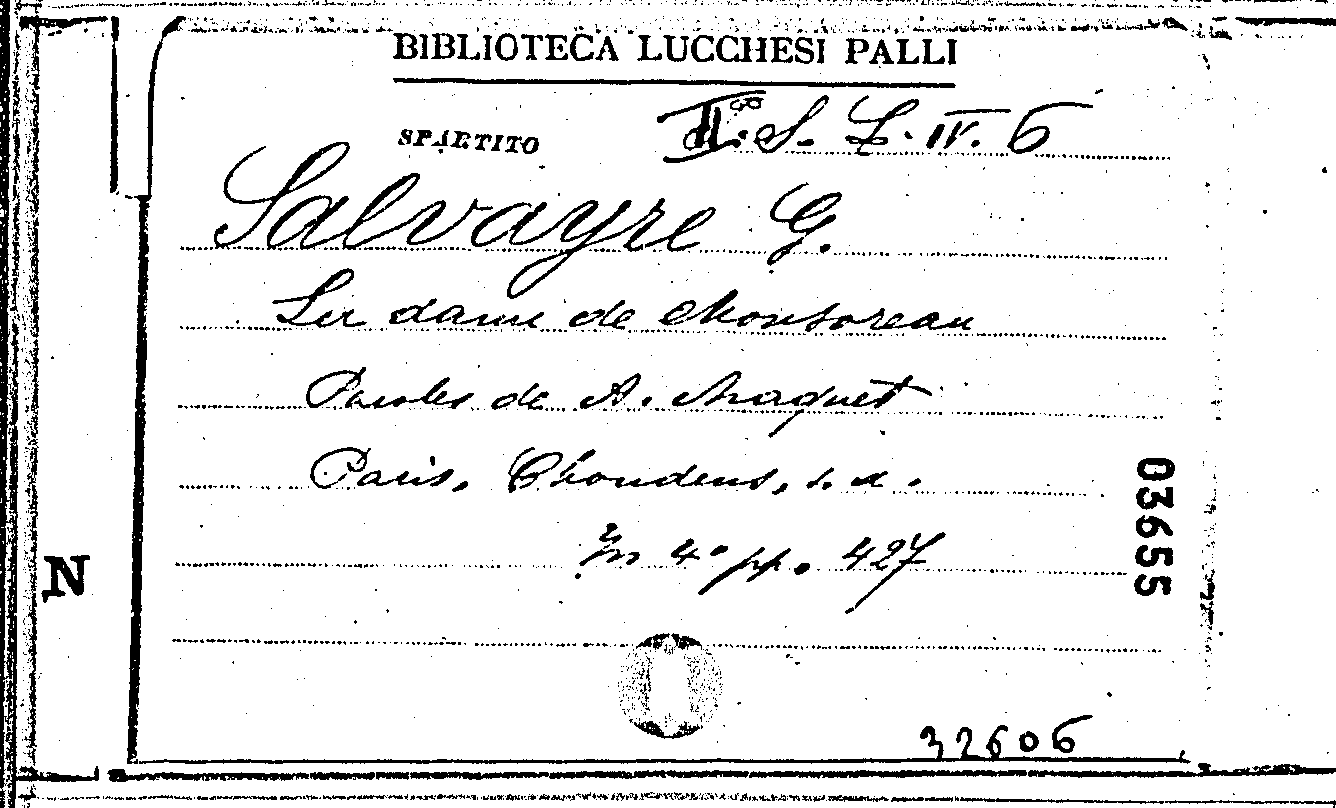 BIBLIOTECA LUCCHESI PALLI
SPARTITO
II.ª S. L. IV. 6
Salvayre G.
La dame de Monsoreau
Paroles de A. Maquet
Paris, Choudens, s. d.
In 4° pp. 427
03655
N
32606